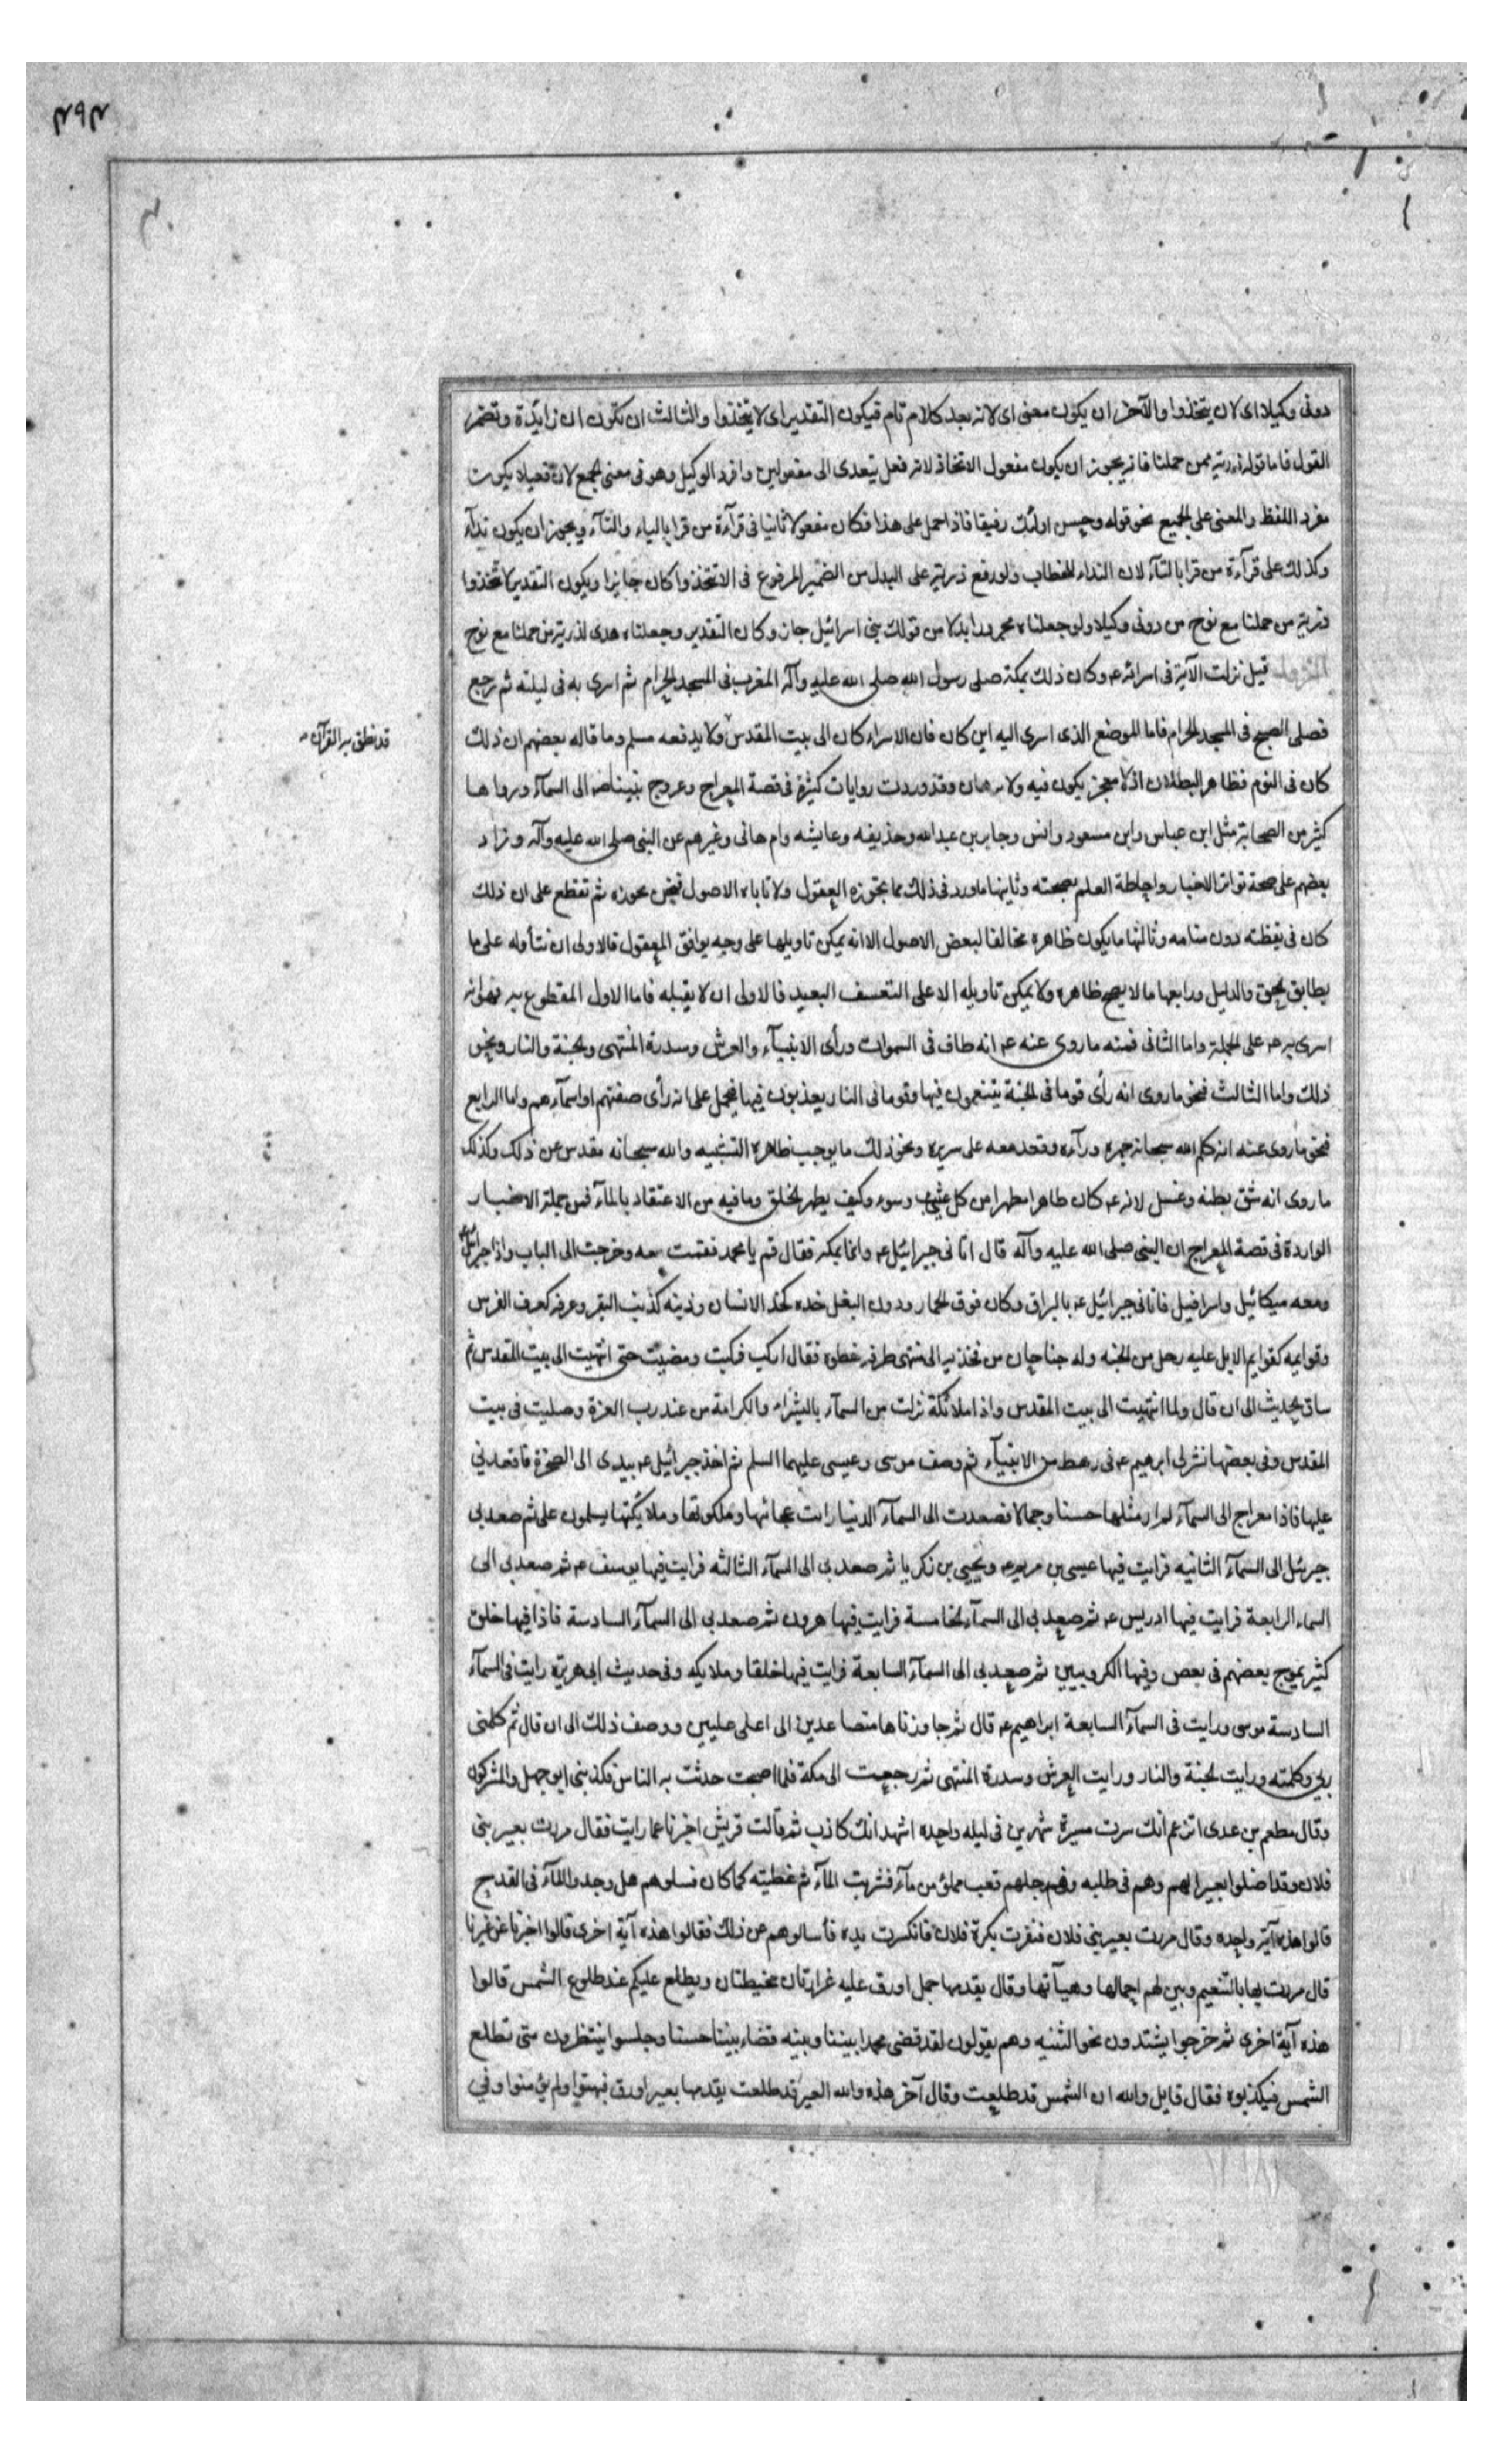 ٣٩٣
دونى وكيلا اى لان يتخذوا والآخر ان يكون معنى اى لانه بعد كلام تام فيكون التقدير اى لا يتخذوا والثالث ان تكون ان زايدة وتضمر
القول فاما قوله ذرية من حملنا فانه يجوز ان يكون مفعول الاتخاذ لانه فعل يتعدى الى مفعولين وافرد الوكيل وهو فى معنى الجمع لان فعيلا يكون
مفرد اللفظ والمعنى على الجميع نحو قوله وحسن اولئك رفيقا فاذا حمل على هذا فكان مفعولا ثانيا فى قرآءة من قرا بالياء والتآء ويجوز ان يكون ندآء
وكذلك على قرآءة من قرا بالتآء لان النداء للخطاب ولو رفع ذرية على البدل من الضمير المرفوع فى الا تتخذوا كان جايزا ويكون التقدير لا تتخذوا
ذرية من حملنا مع نوح من دونى وكيلا ولو جعلناه مجرورا بدلا من قولك بنى اسرائيل جاز وكان التقدير وجعلناه هدى لذرية من حملنا مع نوح
النزول قيل نزلت الآية فى اسرائه عم وكان ذلك بمكة صلى رسول الله صلى الله عليه وآله المغرب فى المسجد الحرام ثم اسرى به فى ليلته ثم رجع
فصلى الصبح فى المسجد الحرام فاما الموضع الذى اسرى اليه اين كان فان الاسراء كان الى بيت المقدس ولا يدفعه مسلم وما قاله بعضهم ان ذلك
قد نطق به القرآن
كان فى النوم فظاهر البطلان اذ لا معجز يكون فيه ولا برهان وقد وردت روايات كثيرة فى قصة المعراج وعروج نبينا صه الى السمآء ورواها
كثير من الصحابة مثل ابن عباس وابن مسعود وانس وجابر بن عبدالله وحذيفه وعايشه وام هانى وغيرهم عن النبى صلى الله عليه وآله وزاد
بعضهم على صحة تواتر الاخبار واحاطة العلم بصحته وثانيها ما ورد فى ذلك مما تجوزه العقول ولا تاباه الاصول فنحن نجوزه ثم تقطع على ان ذلك
كان فى يقظته دون منامه وثالثها ما يكون ظاهره مخالفا لبعض الاصول الا انه يمكن تاويلها على وجه يوافق المعقول فالاولى ان نتأوله على ما
يطابق الحق والدليل ورابعها ما لا يصح ظاهره ولا يمكن تاويله الا على التعسف البعيد فالاولى ان لا يقبله فاما الاول المقطوع به فهو انه
اسرى به عم على الجملة واما الثانى فمنه ما روى عنه عم انه طاف فى السموات ورأى الانبيآء والعرش وسدرة المنتهى والجنة والنار ونحو
ذلك واما الثالث فنحو ما روى انه رأى قوما فى الجنة يتنعمون فيها وقوما فى النار يعذبون فيها فيحمل على انه رأى صفتهم او اسمآءهم واما الرابع
فنحو ما روى عنه انه كلم الله سبحانه جهرة ورآءه وقعد معه على سريره ونحو ذلك ما يوجب ظاهره التشبيه والله سبحانه مقدس عن ذلك وكذلك
ما روى انه شق بطنه وغسل لانه عم كان طاهرا مطهرا من كل عيب وسوء وكيف يطهر الخلق وما فيه من الاعتقاد بالمآء فمن جملة الاخبار
الواردة فى قصة المعراج ان النبى صلى الله عليه وآله قال اتانى جبرائيل عم وانا بمكة فقال قم يا محمد فقمت معه وخرجت الى الباب واذا جبرائيل
ومعه ميكائيل واسرافيل فاتانى جبرائيل عم بالبراق وكان فوق الحمار ودون البغل خده كخد الانسان وذنبه كذنب البقر وعرفه كعرف الفرس
وقوايمه كقوايم الابل عليه رحل من الجنه وله جناحان من فخذيه الى منتهى طرفه خطوه فقال اركب فركبت ومضيت حتى انتهيت الى بيت المقدس ثم
ساق الحديث الى ان قال ولما انتهيت الى بيت المقدس واذا ملائكة نزلت من السمآء بالبشراء والكرامة من عند رب العزة وصليت فى بيت
المقدس وفى بعضها نشر لى ابرهيم عم فى رهط من الانبيآء ثم وصف موسى وعيسى عليهما السلم ثم اخذ جبرائيل عم بيدى الى الصخرة فاقعدنى
عليها فاذا معراج الى السمآء لم ار مثلها حسنا وجمالا فصعدت الى السمآء الدنيا رايت عجائبها وملكوتها وملائكتها يسلمون على ثم صعد بى
جبرئل الى السمآء الثانيه فرايت فيها عيسى بن مريم عم ويحيى بن زكريا ثم صعد بى الى السمآء الثالثه فرايت فيها يوسف عم ثم صعد بى الى
السماء الرابعة فرايت فيها ادريس عم ثم صعد بى الى السمآء الخامسة فرايت فيها هرون ثم صعد بى الى السمآء السادسة فاذا فيها خلق
كثير يموج بعضهم فى بعض وفيها الكروبيين ثم صعد بى الى السمآء السابعة فرايت فيها خلقا وملايكه وفى حديث ابى هريرة رايت فى السمآء
السادسة موسى ورايت فى السمآء السابعة ابراهيم عم قال ثم جاوزناها متصاعدين الى اعلى عليين ووصف ذلك الى ان قال ثم كلمنى
ربى وكلمته ورايت الجنة والنار ورايت العرش وسدرة المنتهى ثم رجعت الى مكة فلما اصبحت حدثت به الناس فكذبنى ابو جهل والمشركون
وقال مطعم بن عدى اتزعم انك سرت مسيرة شهرين فى ليله واحده اشهد انك كاذب ثم قالت قريش اخبرنا عما رايت فقال مررت بعير بنى
فلان وقد اضلوا بعيرا لهم وهم فى طلبه وفى رحلهم قعب مملؤ من مآء فشربت المآء ثم غطيته كما كان فسلوهم هل وجدوا المآء فى القدح
قالوا هذه آية واحده وقال مررت بعير بنى فلان فنفرت بكرة فلان فانكسرت يده فأسالوهم عن ذلك فقالوا هذه آية اخرى قالوا اخبرنا عن عيرنا
قال مررت بها بالتنعيم وبين لهم احمالها وهيآتها وقال يقدمها جمل اورق عليه غرارتان مخيطتان ويطلع عليكم عند طلوع الشمس قالوا
هذه آية اخرى ثم خرجوا يشتدون نحو الثنيه وهم يقولون لقد قضى محمدا بيننا وبينه قضاء بيننا حسنا وجلسوا ينتظرون متى تطلع
الشمس فيكذبوه فقال قايل والله ان الشمس قد طلعت وقال آخر هذه والله العير قد طلعت يقدمها بعير اورق فبهتوا ولم يؤمنوا وفى